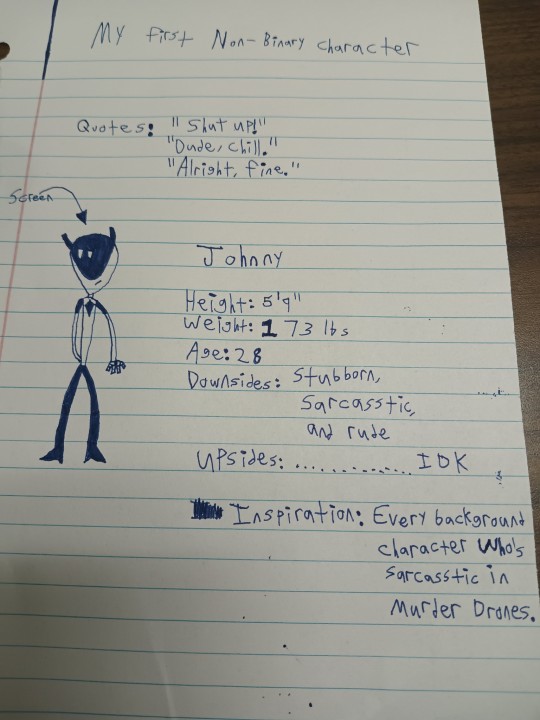 My First Non-Binary character
Quotes: "Shut up!"
"Dude, chill."
"Alright, fine."
Screen
Johnny
Height: 5'9"
Weight: 173 lbs
Age: 28
Downsides: Stubborn,
Sarcasstic,
and rude
Upsides: .............. IDK
Inspiration: Every background
character Who's
sarcasstic in
Murder Drones.